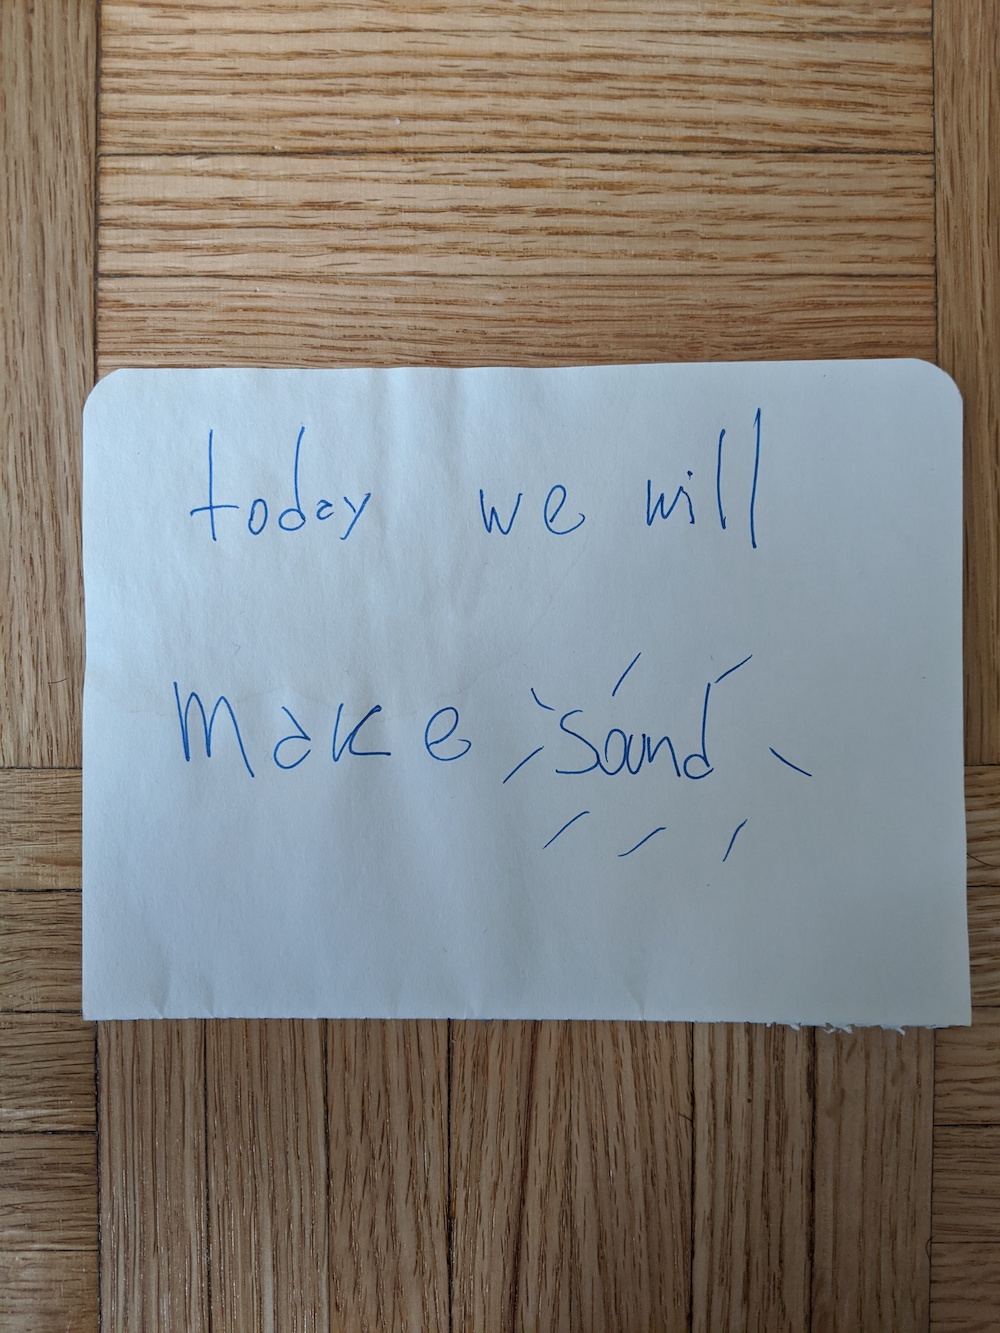 today we will
make sound